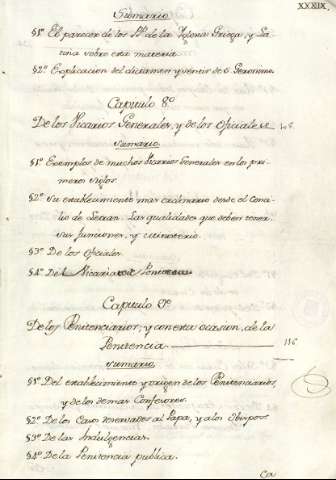 XXXIX.
Sumario
§1º El parecer de los PP. de la Iglesia Griega, y La-
tina sobre esta materia.
§2º Explicacion del dictamen, y sentir de S. Geronimo.
Capitulo 8º
De los Vicarios Generales, y de los Oficiales
Sumario
§1º Exemplos de muchos Vicarios Generales en los pri-
meros siglos.
§2º Su establecimiento mas ordinario desde el Conci-
lio de Letran. Las qualidades que deben tener
sus funciones, y Ministerio.
§3º De los Oficiales.
§4º Del Vicariato
Capitulo 9º
De los Penitenciarios, y con esta ocasion, de la
Penitencia 116
Sumario
§1º Del establecimiento y origen de los Penitenciarios,
y de los demas Confesores.
§2º De los Casos reservados al Papa, y a los Obispos
§3º De las Indulgencias.
§4º De la Penitencia publica.
Ca